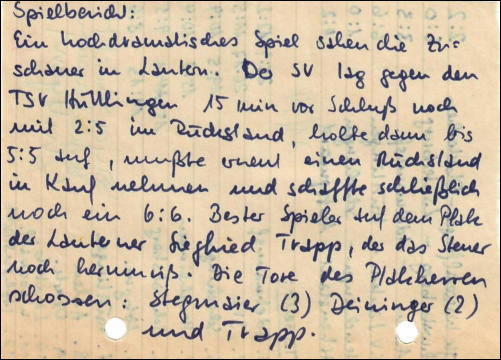 Spielbericht:
Ein hochdramatisches Spiel sahen die Zu-
schauer in Lautern. Der SV lag gegen den
TSV Hüttlingen 15 min vor Schluß noch
mit 2:5 im Rückstand, holte dann bis
5:5 auf, mußte erneut einen Rückstand
in Kauf nehmen und schaffte schließlich
noch ein 6:6. Bester Spieler auf dem Platz
der Lauterner Siegfried Trapp, der das Steuer
noch herumriß. Die Tore des Platzherren
schossen: Stegmaier (3) Deininger (2)
und Trapp.